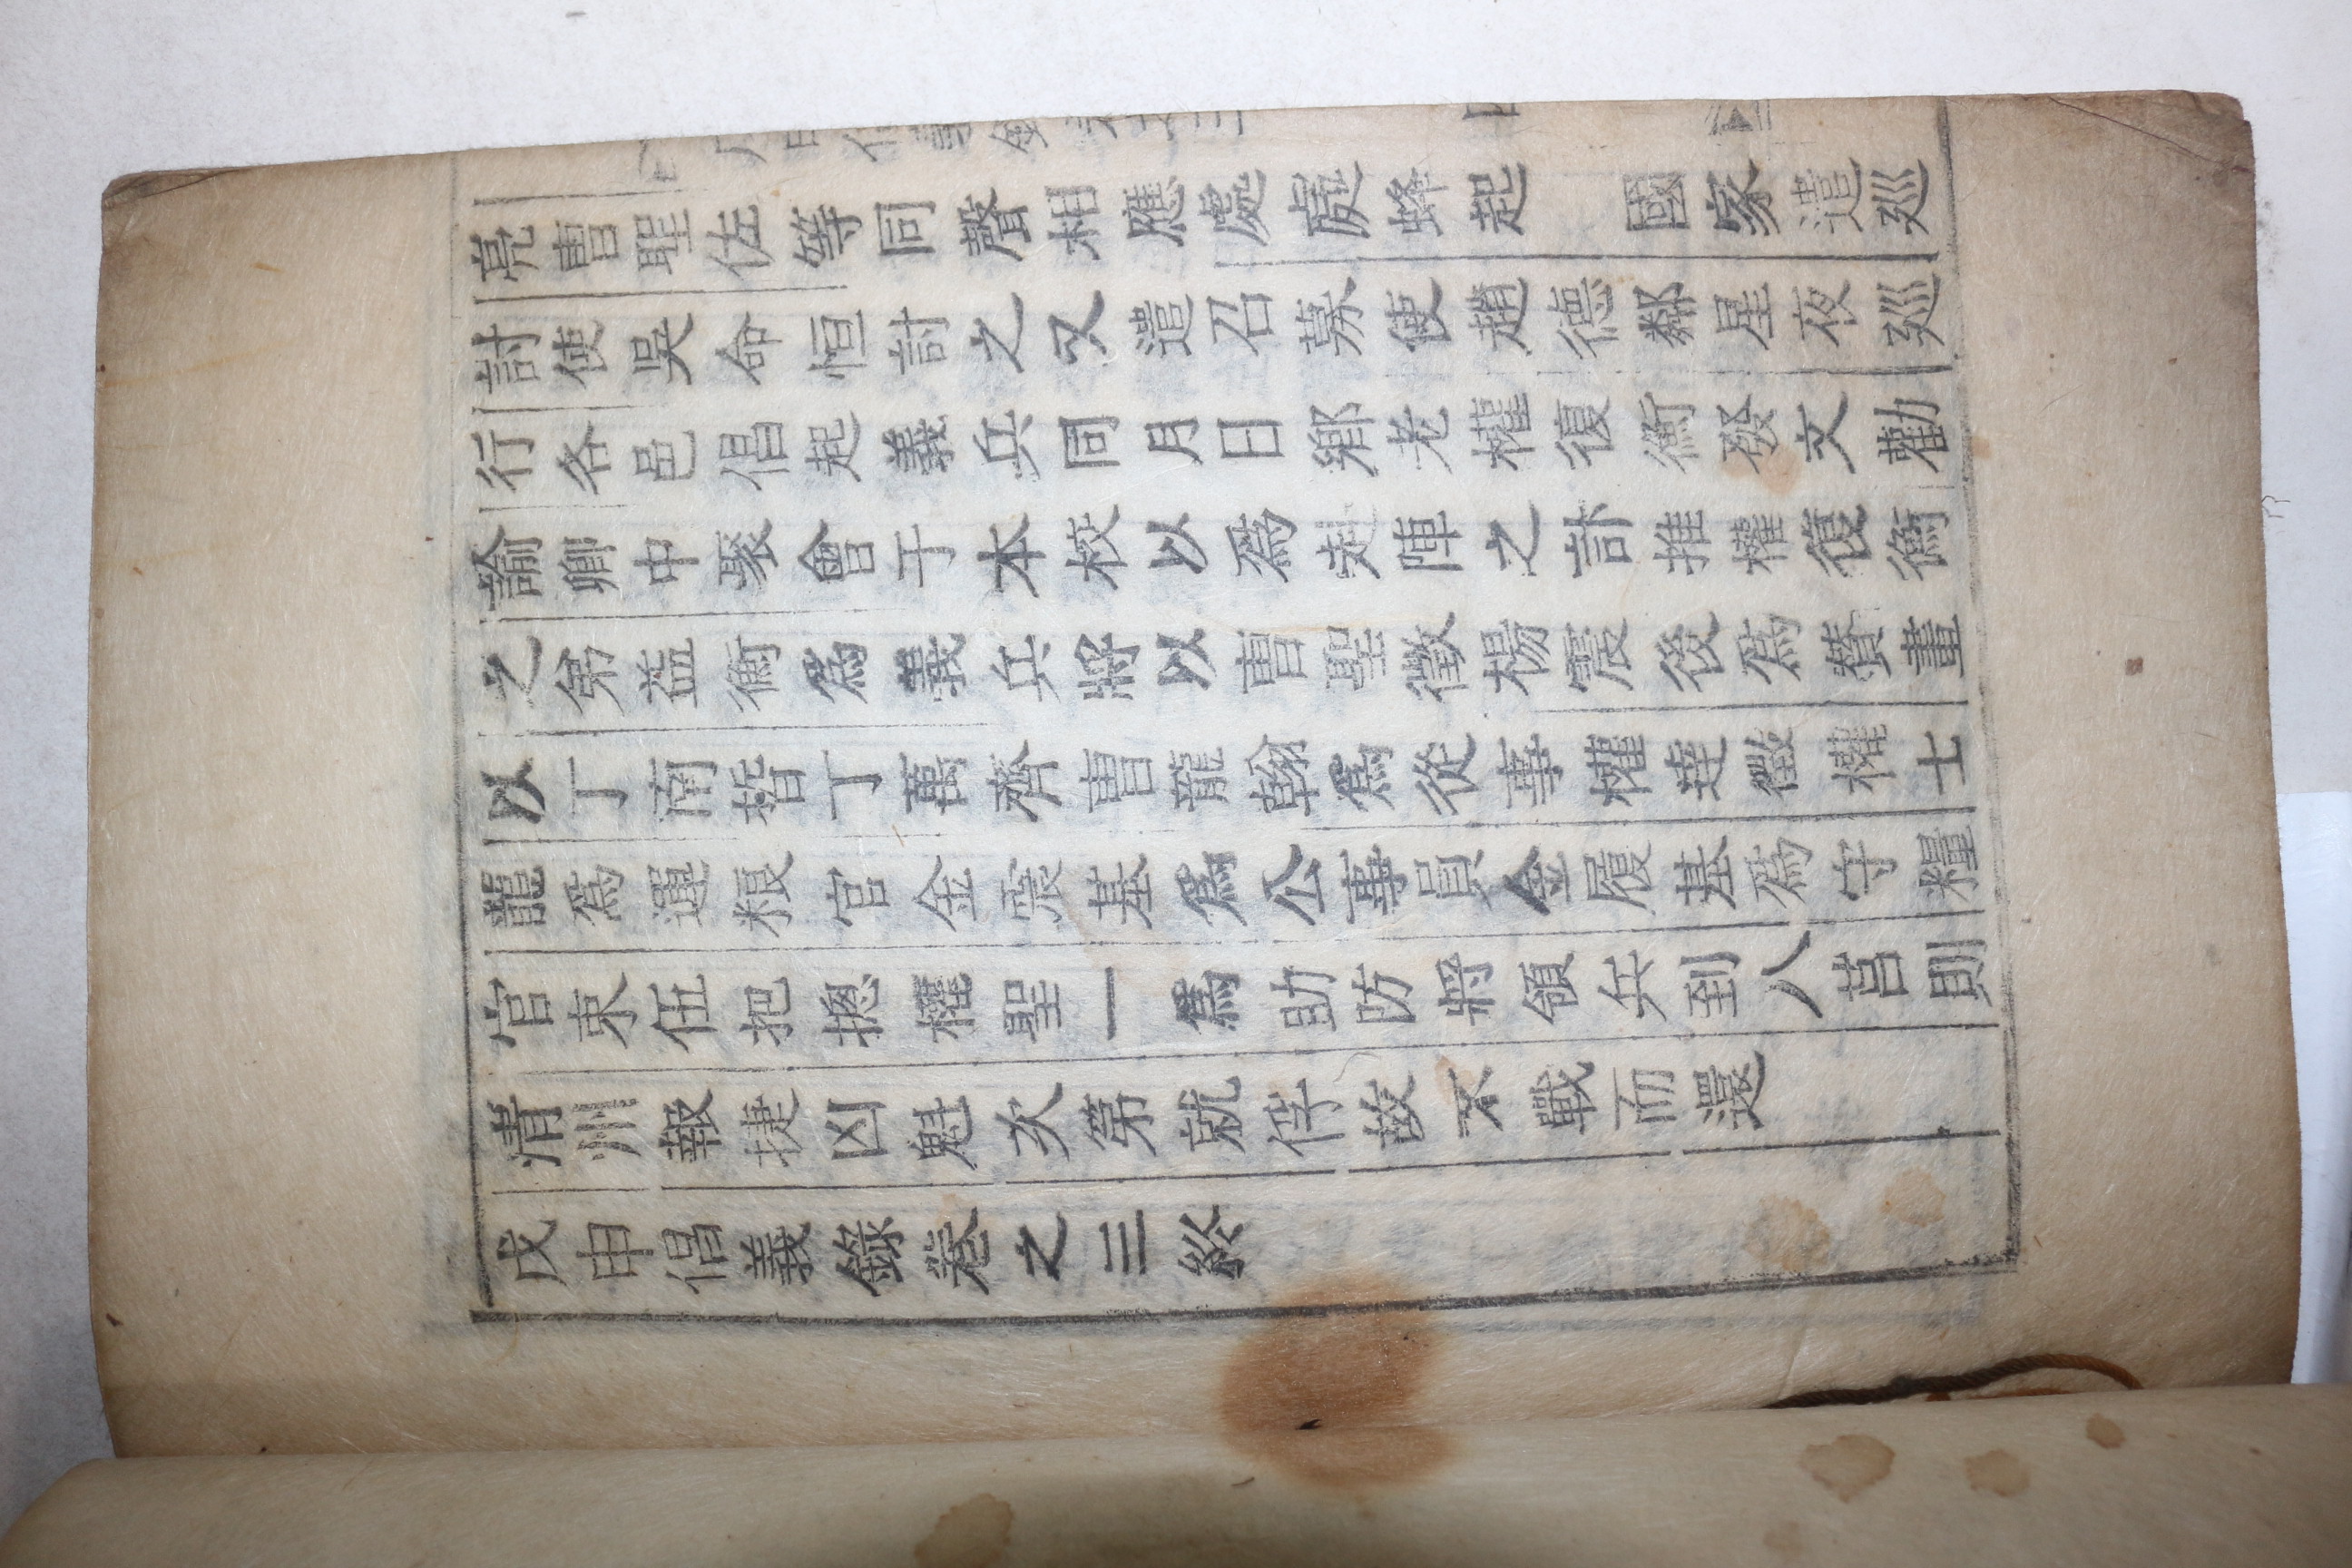 亮曺聖佐等同聲相應處處蜂起　國家遣巡
討使吳命恒討之又遣召募使趙德鄰星夜巡
行各邑倡起義兵同月日鄕老權復衡發文勸
諭鄕中聚會于本校以爲赴陣之計推權復衡
之弟益衡爲義兵將以曺聖徵楊震後爲贊畫
以丁南哲丁萬齊曺龍翰爲從事權達徽權士
龍爲運粮官金震基爲公事員金履基爲守糧
官束伍把摠權聖一爲助防將領兵到八莒則
淸州報捷凶魁次第就俘故不戰而還
戊申倡義錄卷之三終